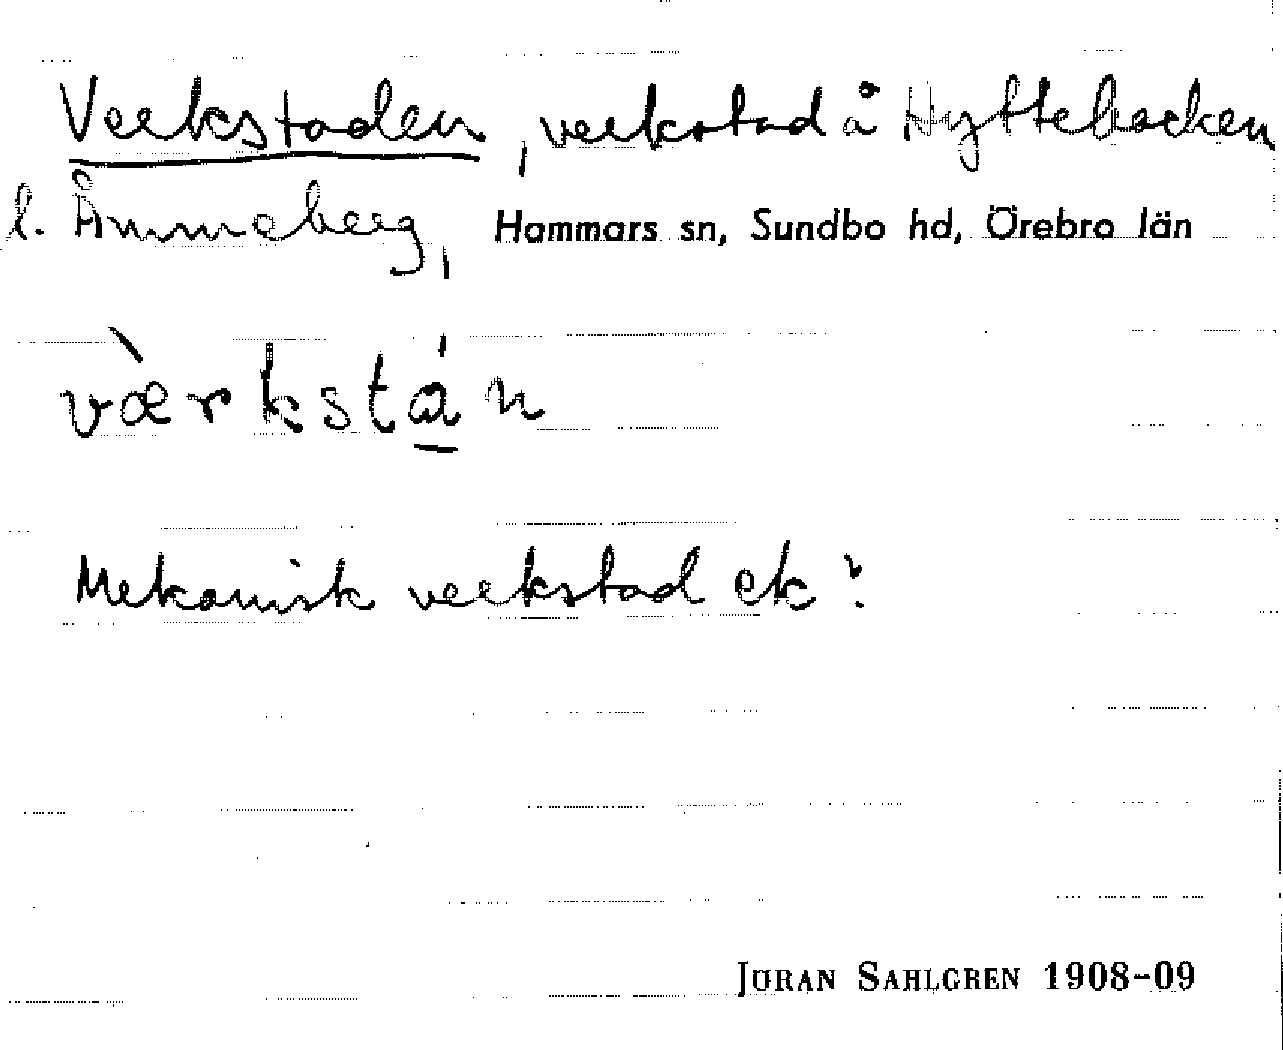 Verkstaden, verkstad å Hyttebacken
l. Åmmeberg, Hammars sn, Sundbo hd, Örebro län
væ̀rkstá̱n
Mekanisk verkstad etc?
JÖRAN SAHLGREN 1908-09